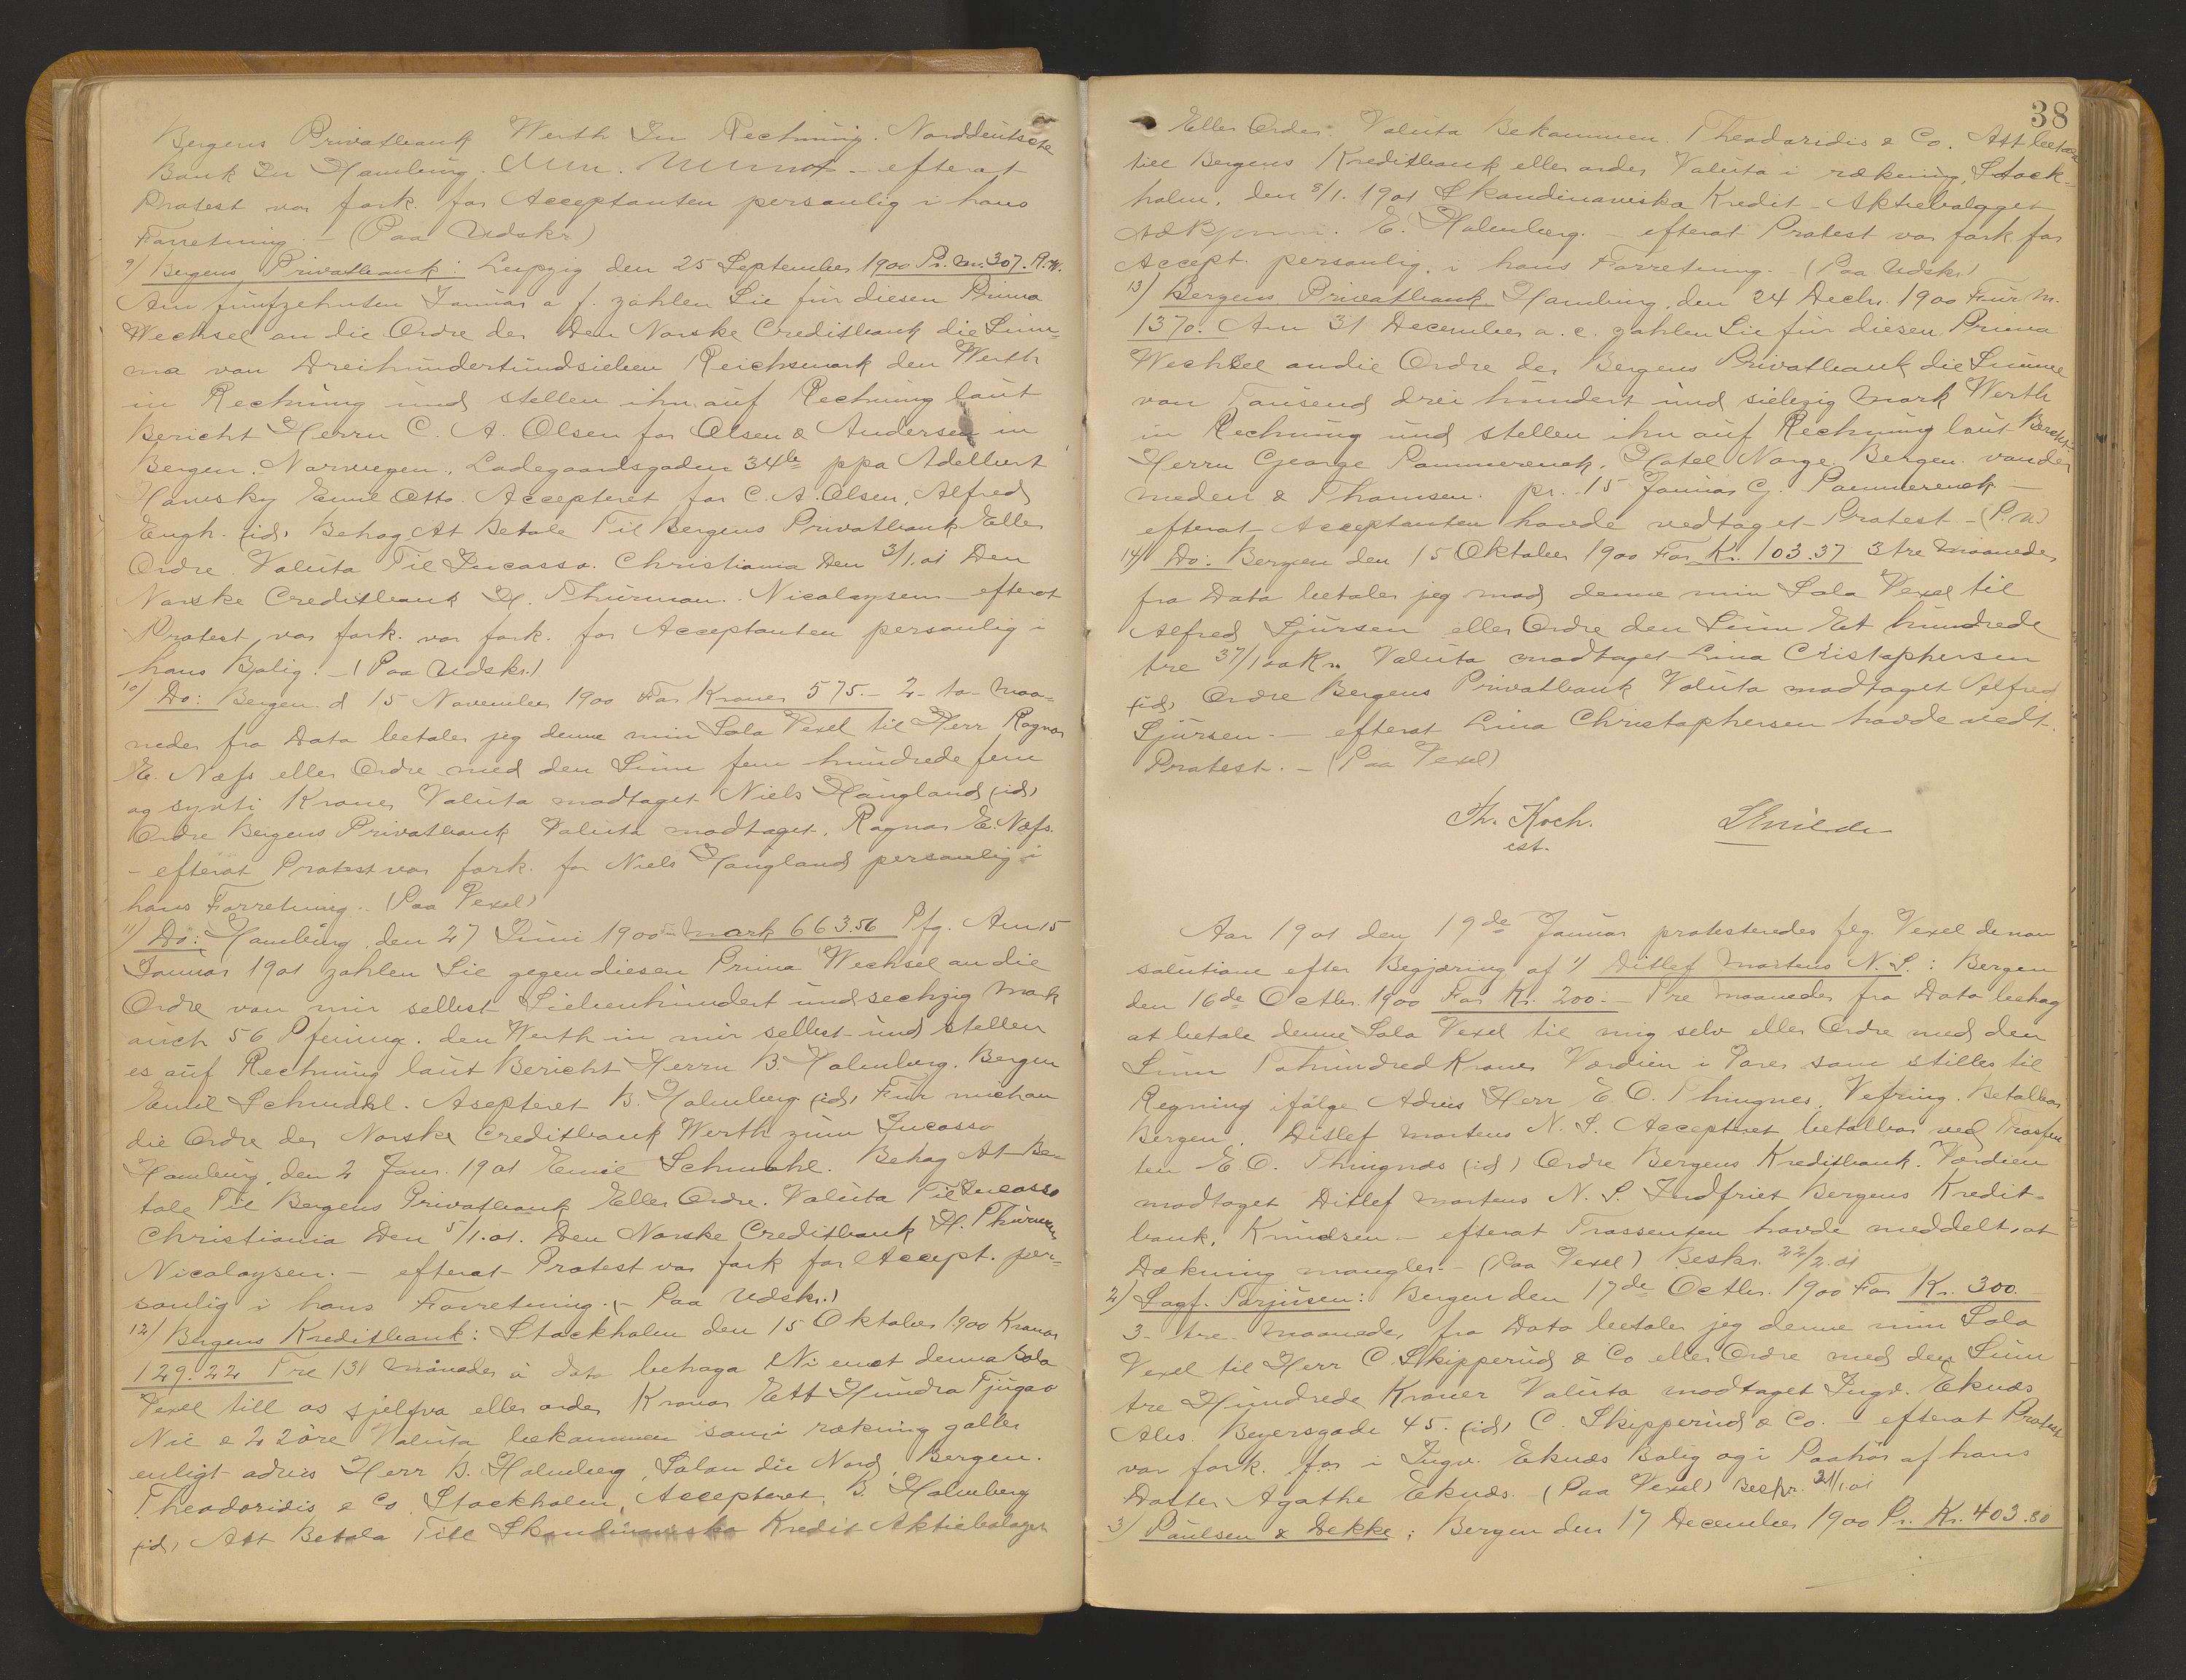 Bergens Privatbank Werth In Rechnung. Norddeutsche
Bank In Hamburg. - efterat
Protest var fork. for Acceptanten personlig i hans
Forretning. - (Paa Udskr)
9) Bergens Privatbank: Leipzig den 25 September 1900 Pr. M. 307. R.M.
Am fünfzehnten Januar a f. zahlen Sie für diesen Prima
Wechsel an die Ordre der Den Norske Creditbank die Sum=
ma von Dreihundertundsieben Reichsmark den Werth
in Rechnung und stellen ihn auf Rechnung laut
Bericht Herrn C. A. Olsen for Olsen & Andersen in
Bergen. Norwegen. Ladegaardsgaden 34b ppa Adelbert
Hawsky Emil Otto. Accepteret for C. A. Olsen, Alfred
Engh. (id) Behag At Betale Til Bergens Privatbank Eller
Ordre. Valuta Til Incasso. Christiania Den 3/1.01 Den
Norske Creditbank H. Thurman. Nicolaysen - efterat
Protest var fork. var fork. for Acceptanten personlig i
hans Bolig. - (Paa Udskr.)
10) Do: Bergen d 15 November 1900 For Kroner 575.- 2- to- Maa=
neder fra Dato betaler jeg denne min Sola Vexel til Herr Ragnar
E. Næss eller Ordre med den Sum fem hundrede fem
og sytti Kroner Valuta modtaget Niels Haugland (id)
Ordre Bergens Privatbank Valuta modtaget. Ragnar E. Næss.
- efterat Protest var fork. for Niels Haugland personlig i
hans Forretning. - (Paa Vexel)
11) Do: Hamburg, den 27 Juni 1900 - Mark 663.56 Pfg. Am 15
Januar 1901 zahlen Sie gegen diesen Prima Wechsel an die
Ordre von mir selbst Siebenhundert und sechzig Mark
auch 56 Pfening. den Werth in mir selbst und stellen
es auf Rechnung laut Bericht Herrn B. Holmberg. Bergen
Emil Schmahl. Asepteret B. Holmberg (id) Für mich an
die Ordre der Norske Creditbank Werth zum Incasso
Hamburg, den 2 Janr. 1901 Emil Schmahl. Behag At Be=
tale Til Bergens Privatbank Eller Ordre. Valuta Til Incasso
Christiania Den 5/1.01. Den Norske Creditbank H. Thurman
Nicolaysen. - efterat Protest var fork for Accept. per=
sonlig i hans Forretning. (- Paa Udskr.)
12) Bergens Kreditbank: Stockholm den 15 Oktober 1900 Kronor
129.22 Tre (3) Månader à dato behaga Ni emot denna Sola
Vexel till os sjelfva eller order Kronor Ett Hundra Tjugao
Nie & 22 öre Valuta bekommen som i räkning galler
enligt advis Herr B. Holmberg, Salon du Nord, Bergen.
Theodoridis & Co. Stockholm, Accepteret, B. Holmberg
(id) Att Betala Till Skandinaviska Kredit Aktiebolaget
38
Eller Order. Valuta Bekommen. Theodoridis & Co. Att betala
till Bergens Kreditbank eller order Valuta i räkning, Stock-
holm, den 8/1. 1901 Skandinaviska Kredit-Aktiebolaget
E. Holmberg. - efterat Protest var fork. for
Accept. personlig, i hans Forretning. - (Paa Udskr.)
13) Bergens Privatbank Hamburg, den 24 Decbr. 1900 Für M.
1370. Am 31 December a. c. zahlen Sie für diesen Prima
Wechsel an die Ordre der Bergens Privatbank die Summe
von Tausend drei hundert und siebzig Mark Werth
in Rechnung und stellen ihn auf Rechnung laut Bericht
Herrn George Pommerenck, Hotel Norge. Bergen. von der
meden & Thomsen. pr. 15 Januar G. Pommerenck -
efterat Acceptanten havde vedtaget Protest - (P.U.)
14) Do: Bergen den 15 Oktober 1900 For Kr. 103.37 3 tre Maaneder
fra Dato betaler jeg mod denne min Sola Vexel til
Alfred Sjursen eller Ordre den Sum Et hundrede
tre 37/100 Kr. Valuta modtaget Lina Cristophersen
(id) Ordre Bergens Privatbank Valuta modtaget Alfred
Sjursen. - efterat Lina Christophersen havde vedt.
Protest. - (Paa Vexel)
Th. Koch.
cst.
Aar 1901 den 19de Januar protesteredes flg. Vexel de non
solutione efter Begjæring af 1) Ditlef Martens N. S.: Bergen
den 16de Octbr. 1900 For Kr. 200.- Tre Maaneder fra Dato behag
at betale denne Sola Vexel til mig selv eller Ordre med den
Sum Tohundred Kroner Værdien i Varer som stilles til
Regning ifølge Advis Herr E. O. Thingnes. Vefring. Betalbar
Bergen. Ditlef Martens N. S. Accepteret betalbar ved Trassen
ten E. O. Thingnæs (id) Ordre Bergens Kreditbank. Værdien
modtaget Ditlef Martens N. S. Indfriet Bergens Kredit-
bank, Knudsen - efterat Trassenten havde meddelt, at
Dækning mangler. - (Paa Vexel) Beskr. 22/2.01
2) Sagf. Torjusen: Bergen den 17de Octbr. 1900 For Kr. 300.-
3- tre- Maaneder, fra Dato betaler jeg denne min Sola
Vexel til Herr C. Skipperud & Co eller Ordre med den Sum
tre Hundrede Kroner Valuta modtaget Ingv. Eknæs
Ales. Beyersgade 45. (id) C. Skipperud & Co. - efterat Protest
var fork. for i Ingv. Eknæs Bolig og i Paahør af hans
Datter Agathe Eknæs. - (Paa Vexel) Beskr. 21/1.01
3) Paulsen & Dekke: Bergen den 17 December 1900 Pr. Kr. 403.80